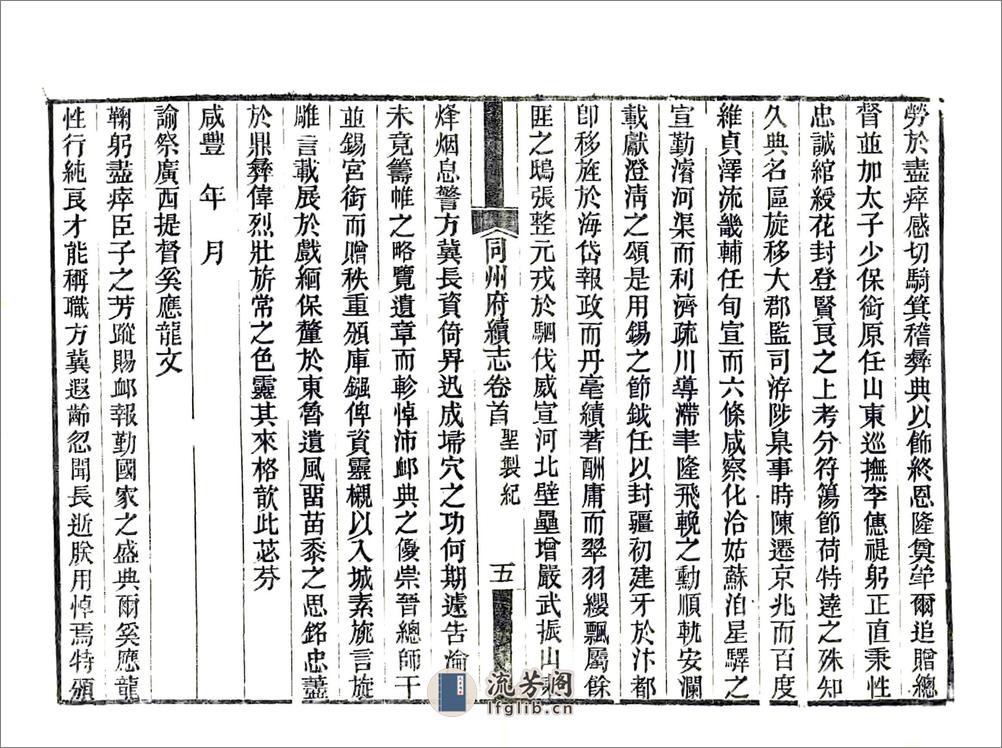 勞於盡瘁感切騎箕稽彝典以飾終恩隆奠斝爾追贈總
督並加太子少保銜原任山東巡撫李僡禔躬正直秉性
忠誠綰綬花封登賢良之上考分符蕩節荷特達之殊知
久典名區旋移大郡監司洊陟臬事時陳遷京兆而百度
維貞澤流畿輔任旬宣而六條咸察化洽姑蘇洎星驛之
宣勤濬河渠而利濟疏川導滯聿隆飛輓之勳順軌安瀾
載獻澄清之頌是用錫之節鉞任以封疆初建牙於汴都
卽移旌於海岱報政而丹毫績著酬庸而翠羽纓飄屬餘
匪之鴟張整元戎於駟伐威宣河北壁壘增嚴武振山
同州府續志卷首 聖製紀 五
烽烟息警方冀長資倚畀迅成埽穴之功何期遽告淪
未竟籌帷之略覽遺章而軫悼沛卹典之優崇晉總師干
並錫宮銜而贈秩重頒庫鏹俾資靈櫬以入城素旐言旋
雕言載展於戲緬保釐於東魯遺風畱苗黍之思銘忠藎
於鼎彝偉烈壯旂常之色靈其來格歆此苾芬
咸豐 年 月
諭祭廣西提督奚應龍文
鞠躬盡瘁臣子之芳蹤賜卹報勤國家之盛典爾奚應龍
性行純良才能稱職方冀遐齡忽聞長逝朕用悼焉特頒
流芳閣
lfglib.cn